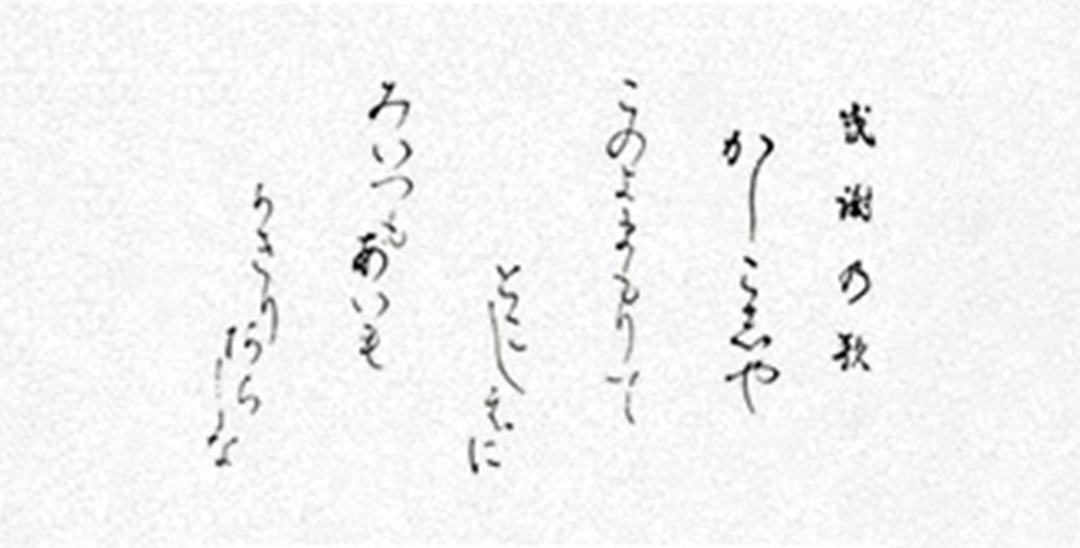 感謝の歌
かしこしや
このよまもりて
とこしえに
みいつもあいも
かきりあらしな